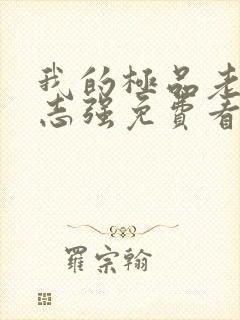 我的極品老
志强免費看
羅宗翰